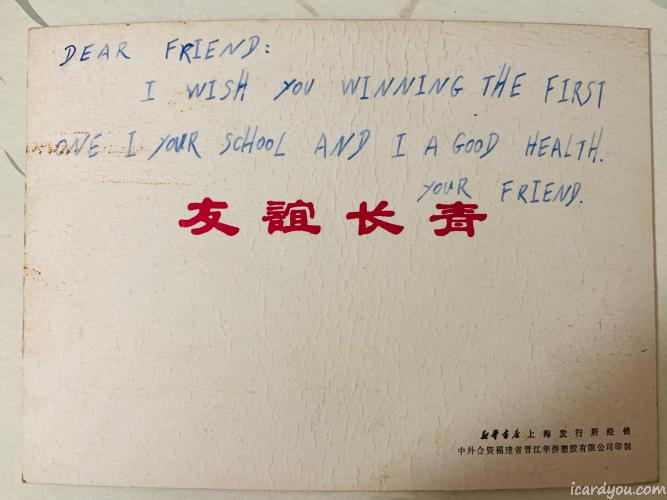 DEAR FRIEND:
I WISH YOU WINNING THE FIRST
ONE I YOUR SCHOOL AND I A GOOD HEALTH.
YOUR FRIEND.
友誼长青
新华书店上海发行所经销
中外合资福建省晋江华侨塑胶有限公司印制
icardyou.com